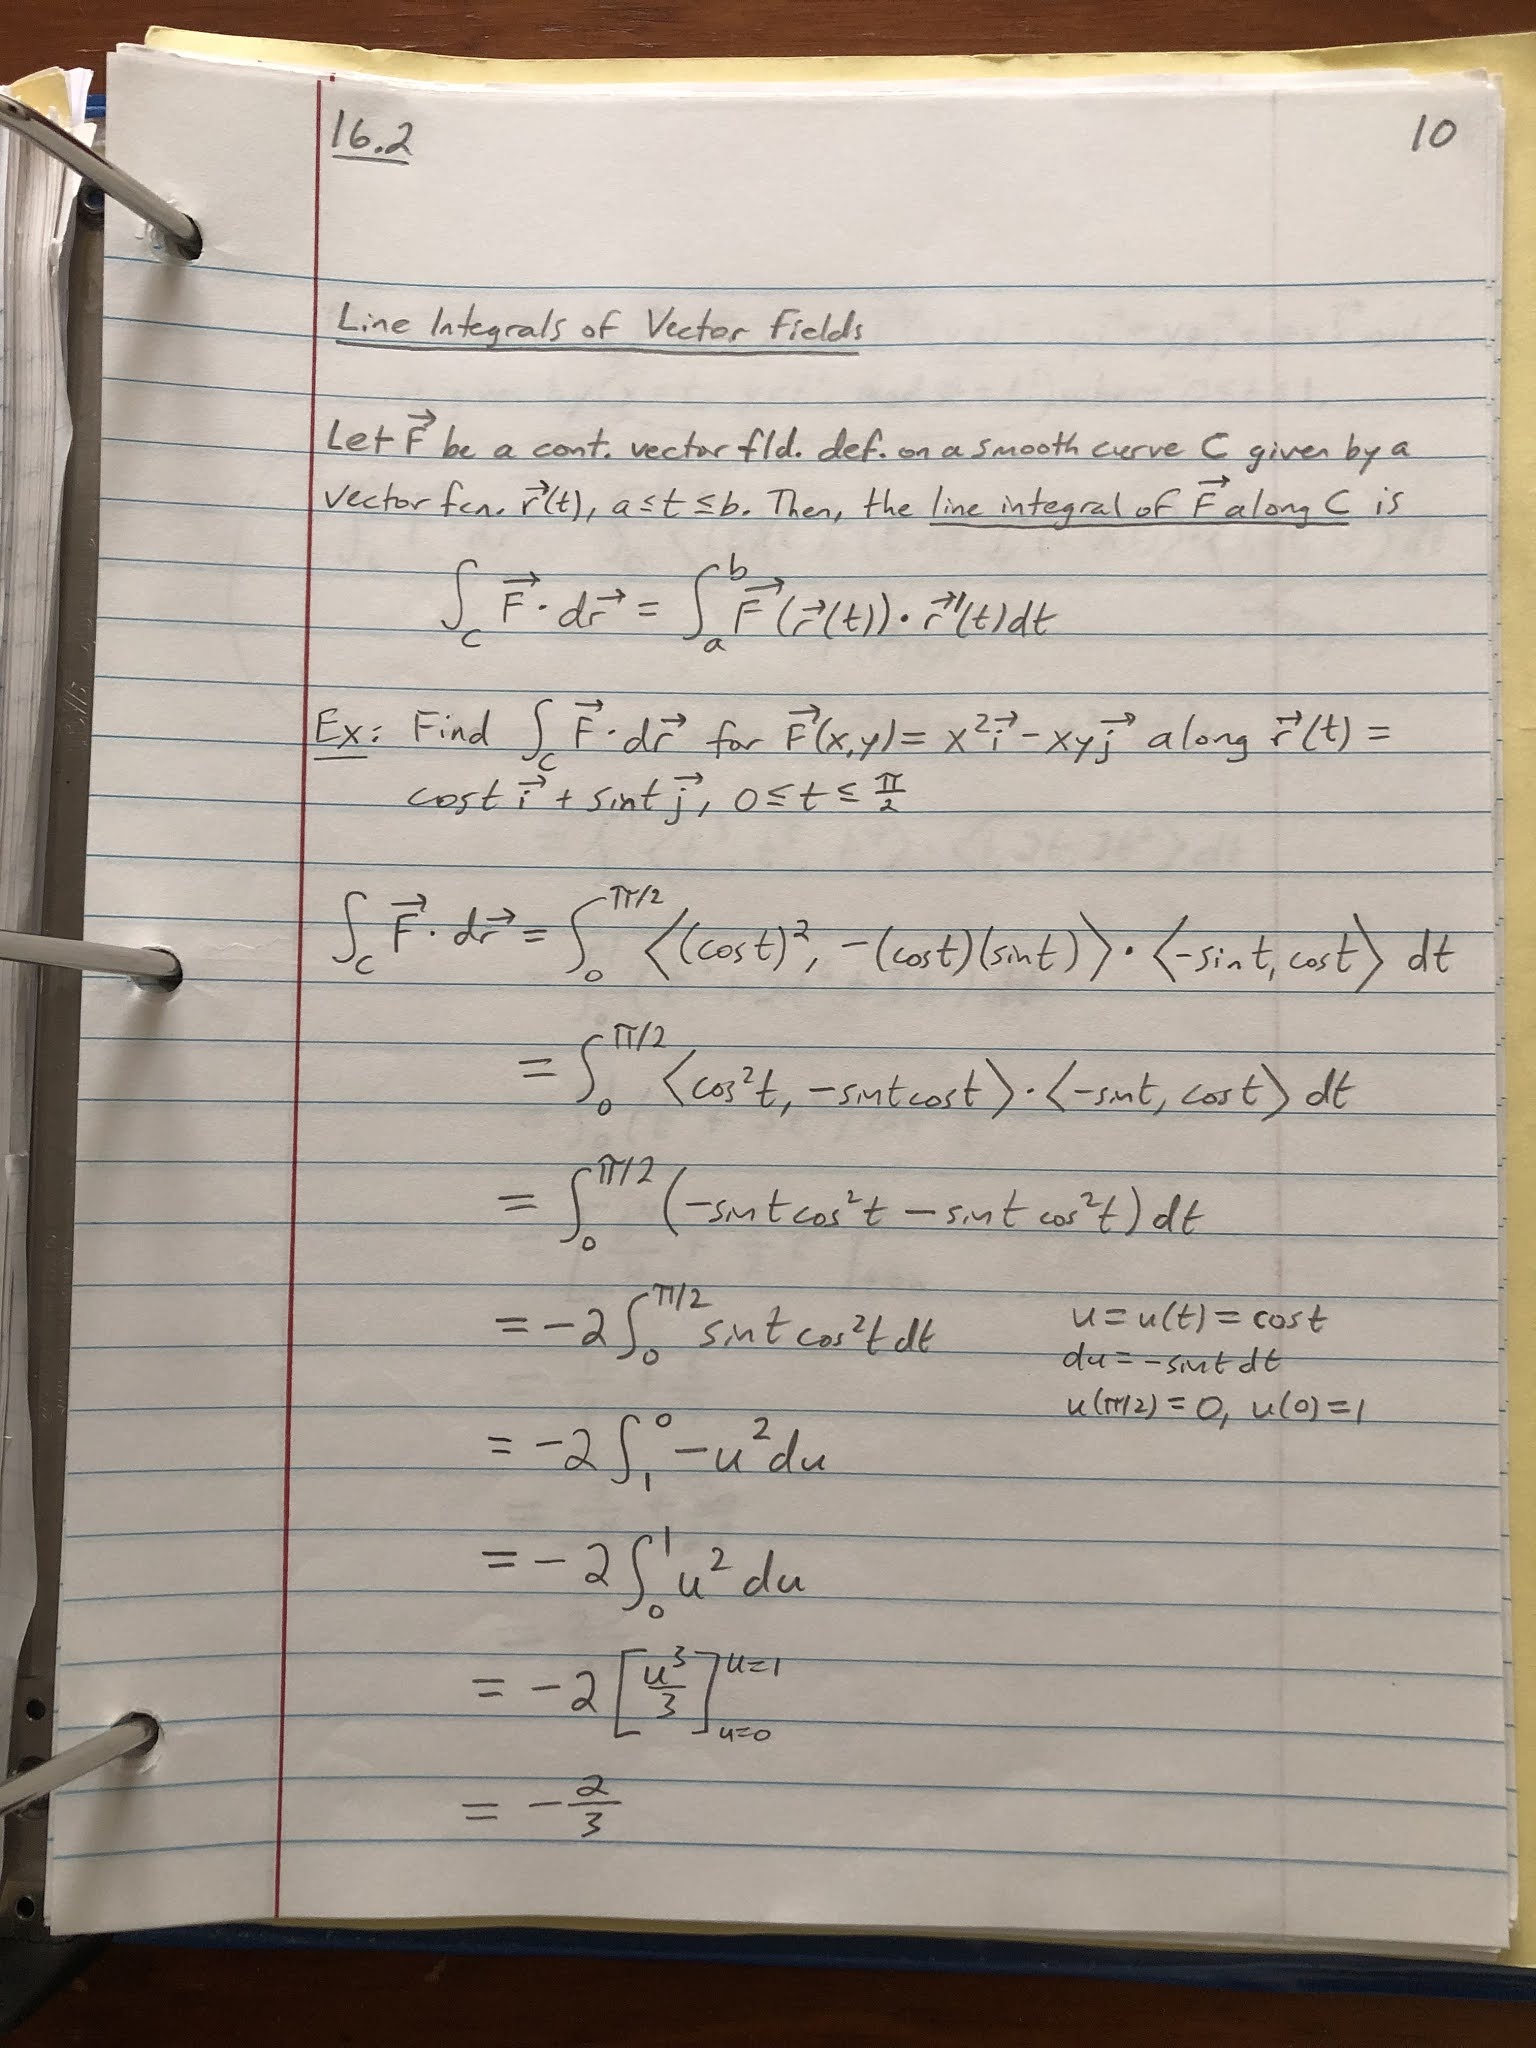 16.2
10
Line Integrals of Vector Fields
Let F⃗ be a cont. vector fld. def. on a smooth curve C given by a
vector fcn. r⃗(t), a ≤ t ≤ b. Then, the line integral of F⃗ along C is
∫_C F⃗ · dr⃗ = ∫_a^b F⃗(r⃗(t)) · r⃗'(t)dt
Ex: Find ∫_C F⃗ · dr⃗ for F⃗(x,y) = x²i⃗ - xyj⃗ along r⃗(t) =
cost i⃗ + sint j⃗, 0 ≤ t ≤ π/2
∫_C F⃗ · dr⃗ = ∫_0^{π/2} ⟨(cost)², -(cost)(sint)⟩ · ⟨-sint, cost⟩ dt
= ∫_0^{π/2} ⟨cos²t, -sintcost⟩ · ⟨-sint, cost⟩ dt
= ∫_0^{π/2} (-sintcos²t - sint cos²t) dt
= -2 ∫_0^{π/2} sint cos²t dt
u = u(t) = cost
du = -sint dt
u(π/2) = 0, u(0) = 1
= -2 ∫_1^0 -u² du
= -2 ∫_0^1 u² du
= -2 [u³/3]_{u=0}^{u=1}
= -2/3